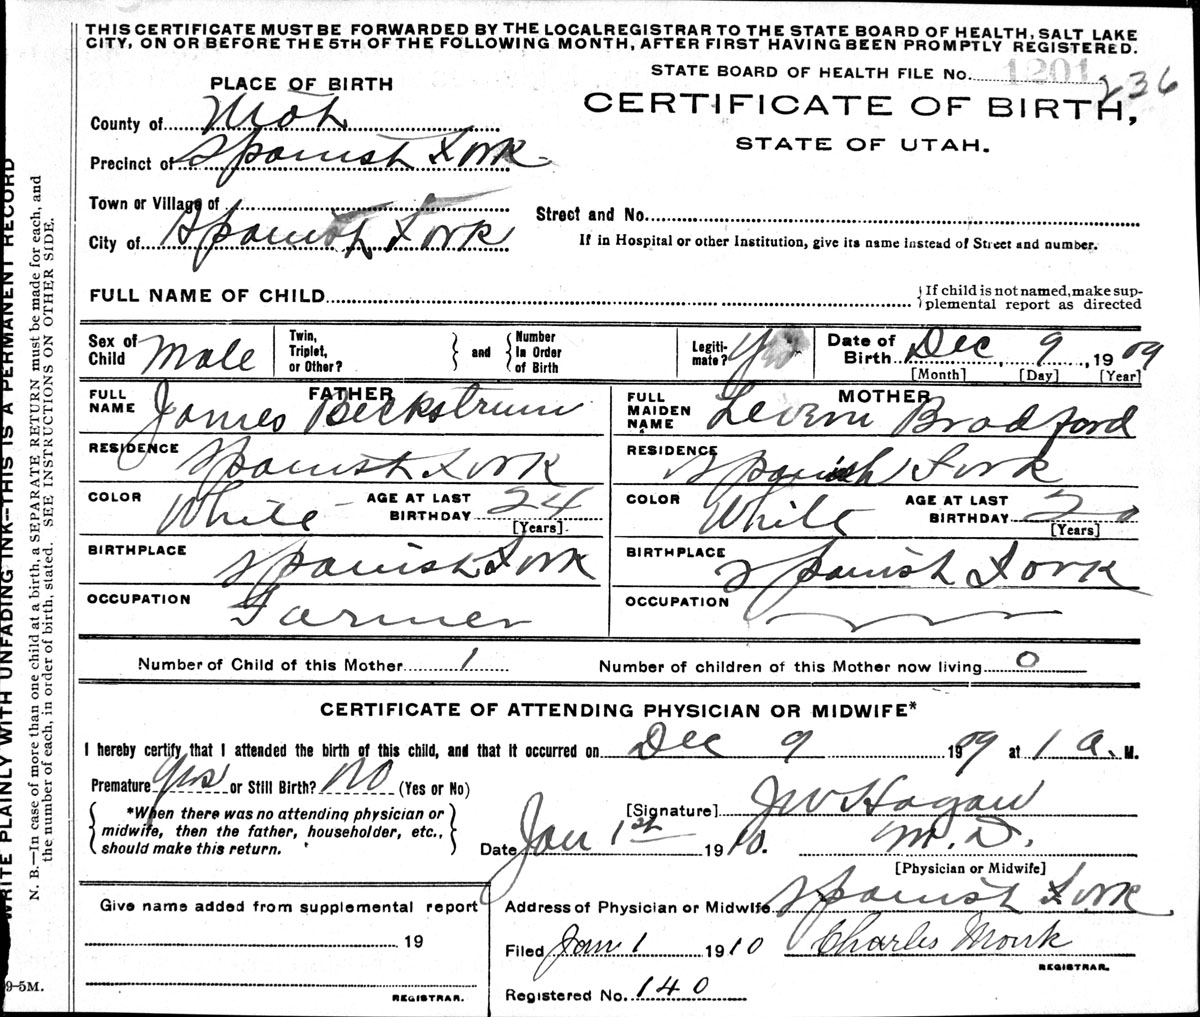 THIS CERTIFICATE MUST BE FORWARDED BY THE LOCAL REGISTRAR TO THE STATE BOARD OF HEALTH, SALT LAKE
CITY, ON OR BEFORE THE 5TH OF THE FOLLOWING MONTH, AFTER FIRST HAVING BEEN PROMPTLY REGISTERED.
STATE BOARD OF HEALTH FILE No. 1201 236
PLACE OF BIRTH
CERTIFICATE OF BIRTH,
STATE OF UTAH.
County of Utah
Precinct of Spanish Fork
Town or Village of
City of Spanish Fork
Street and No.
If in Hospital or other Institution, give its name instead of Street and number.
FULL NAME OF CHILD
{If child is not named, make sup-
plemental report as directed
Sex of Child Male
Twin, Triplet, or Other? } and { Number In Order of Birth
Legiti-mate? Yes
Date of Birth Dec 9, 1909
[Month] [Day] [Year]
FATHER
FULL NAME James Beckstrum
RESIDENCE Spanish Fork
COLOR White AGE AT LAST BIRTHDAY 24
[Years]
BIRTHPLACE Spanish Fork
OCCUPATION Farmer
MOTHER
FULL MAIDEN NAME Levern Bradford
RESIDENCE Spanish Fork
COLOR White AGE AT LAST BIRTHDAY 20
[Years]
BIRTHPLACE Spanish Fork
OCCUPATION
Number of Child of this Mother 1 Number of children of this Mother now living 0
CERTIFICATE OF ATTENDING PHYSICIAN OR MIDWIFE*
I hereby certify that I attended the birth of this child, and that it occurred on Dec 9 1909 at 1 a. M.
Premature Yes or Still Birth? No (Yes or No)
*When there was no attending physician or
midwife, then the father, householder, etc.,
should make this return.
[Signature] J W Hagan
M. D.
Date Jan 1st 1910.
[Physician or Midwife]
Give name added from supplemental report
19
REGISTRAR.
Address of Physician or Midwife Spanish Fork
Filed Jan 1 1910 Charles Monk
REGISTRAR.
Registered No. 140
WRITE PLAINLY WITH UNFADING INK—THIS IS A PERMANENT RECORD
N. B.—In case of more than one child at a birth, a SEPARATE RETURN must be made for each, and
the number of each, in order of birth, stated. SEE INSTRUCTIONS ON OTHER SIDE.
9-5M.